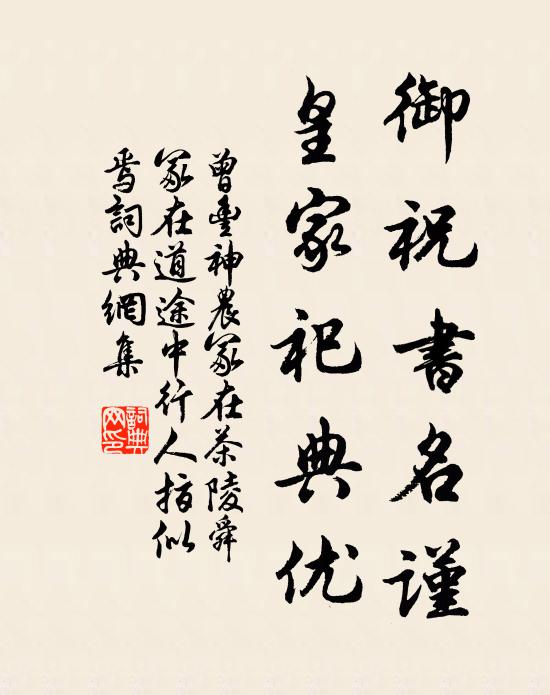 御祝書名謹
皇家祀典优
曾豐神農冢在茶陵舜
冢在道途中行人指似
焉詞典網集
詞典
网印